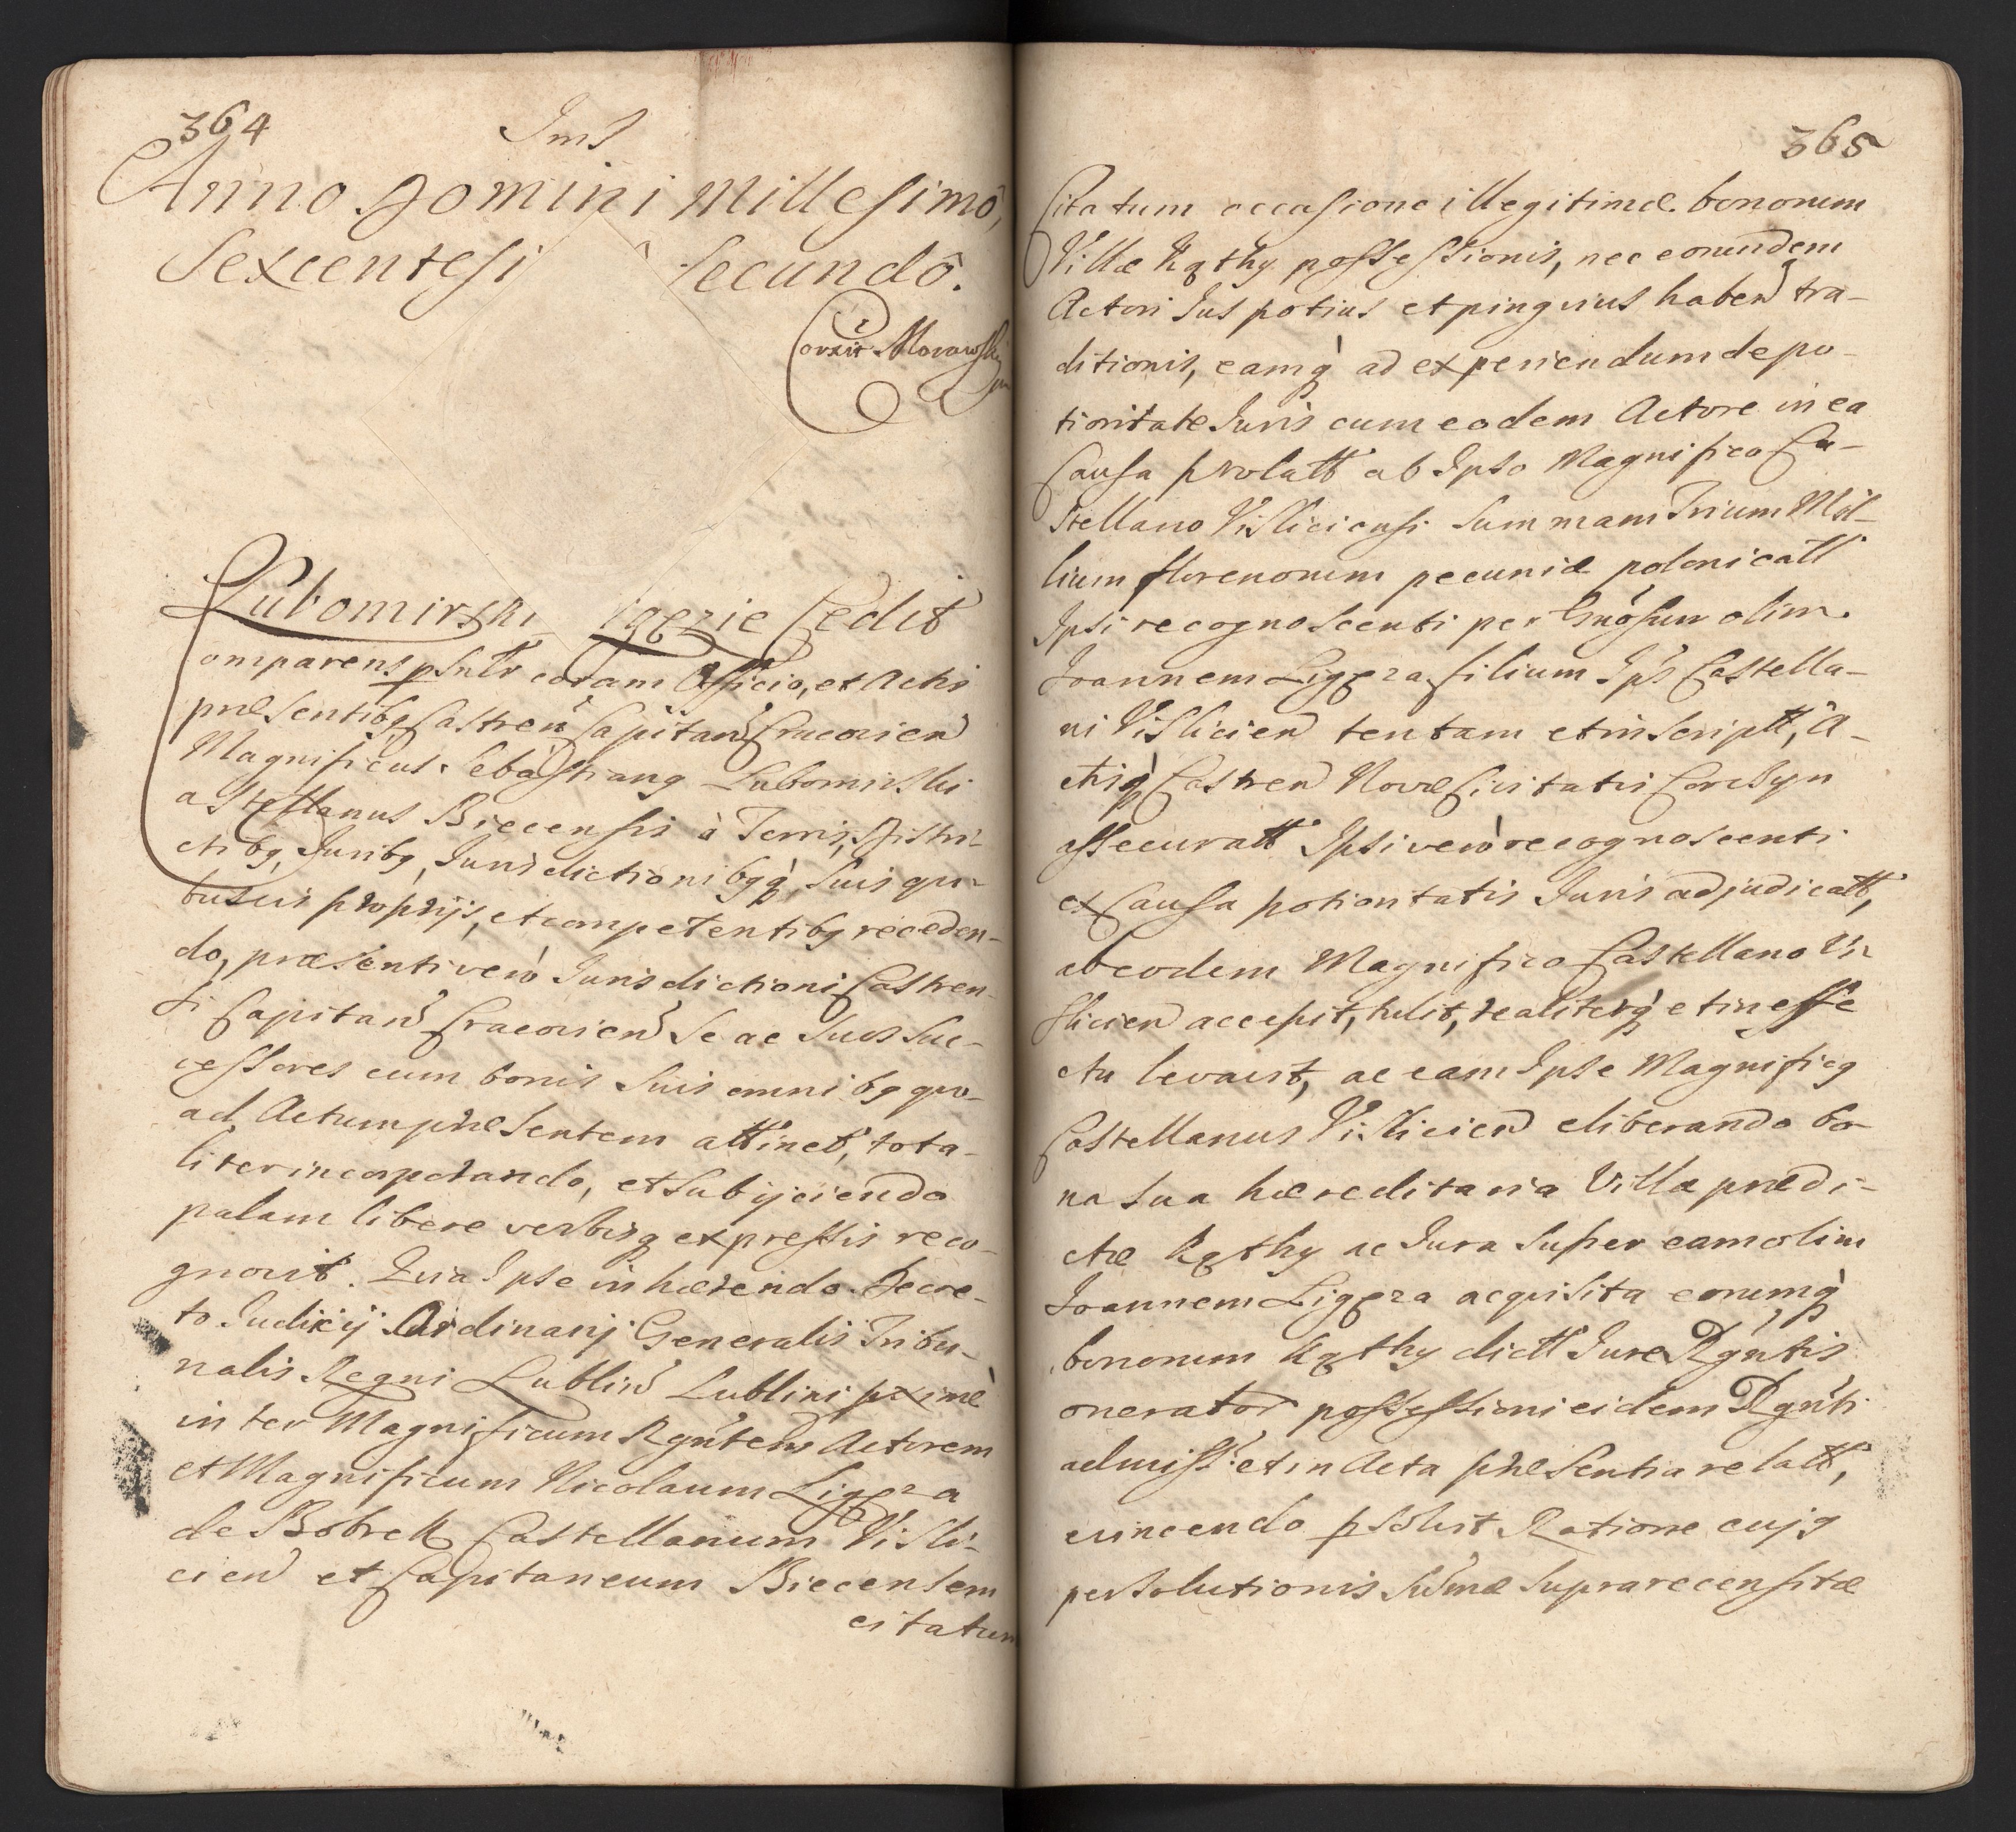 364
Ims
Anno Domini Millesimo,
Sexcentesi secundô.
Corxit Morawski
Lubomirski Ligęzie Cedit
Comparens psnlr coram Officio, et Actis
præsentibq Castren Capitan Cracovien
Magnificus Sebastianq Lubomirski
Castellanus Biecensis à Terris, Distri-
ctibq, Juribq, Jurisdictionibqq̀ suis qui-
busvis proprijs, et competentibq receden-
do, præsenti verò Jurisdictioni Castren-
si Capitan Cracovien se ac suos suc-
cessores cum bonis suis omnibq quo-
ad Actum præsentem attinet, tota-
liter incorporando, et subijciendo
palam libere verbisq expressis reco-
gnovit. Quia Ipse inhærendo Decre-
to Judicij Ordinarij Generalis Tribu-
nalis Regni Lublin Lublini pxime
inter Magnificum Rgntem Actorem
et Magnificum Nicolaum Ligęza
de Bobrek Castellanum Visli-
cien et Capitaneum Biecensem
citatum
365
Citatum occasione illegitimæ bonorum
Villæ Kąthy possessionis, nec eorundem
Actori Jus potius et pinguius haben tra-
ditionis, eamq̀ ad experiendum de po-
tioritate Juris cum eodem Actore in ea
Causa prolatt ab Ipso Magnifico Ca-
stellano Visliciensi Summam Trium Mil-
lium florenorum pecuniæ polonicatt
Ipsi recognoscenti per Gnosum olim
Joannem Ligęza filium Ips Castella-
ni Vislicien tentam et inscriptt, A-
ctisq̀ Castren Novæ Civitatis Corcsyn
assecuratt Ipsi verò recognoscenti
ex Causa potioritatis Juris adjudicatt,
ab eodem Magnifico Castellano Vi-
slicien accepit, tulit, realiterq̀ et in effe
ctu levavit, ac eam Ipse Magnificq
Castellanus Vislicien eliberando bo-
na sua hæreditaria Villæ prædi-
ctæ Kąthy ac Jura super eam olim
Joannem Ligęza acquisita eorumq̀
bonorum Kąthy dictt Jure Rgntis
onerator possessioni eidem Rgnti
admiss: et in Acta præsentia relatt,
evincendo psolvit Ratione cujq
persolutionis Sumæ suprarecensitæ